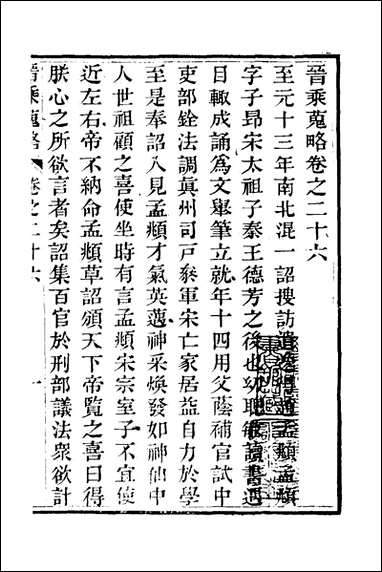 晉乘蒐略卷之二十六
至元十三年南北混一詔搜訪遺逸得趙孟頫孟頫
字子昂宋太祖子秦王德芳之後也幼聰敏讀書過
目輙成誦爲文舉筆立就年十四用父蔭補官試中
吏部銓法調真州司戸叅軍宋亡家居益自力於學
至是奉詔入見孟頫才氣英邁神采煥發如神仙中
人世祖顧之喜使坐時有言孟頫宋宗室子不宜使
近左右帝不納命孟頫草詔頒天下帝覽之喜曰得
朕心之所欲言者矣詔集百官於刑部議法衆欲計
晉乘蒐略 卷之二十六 一